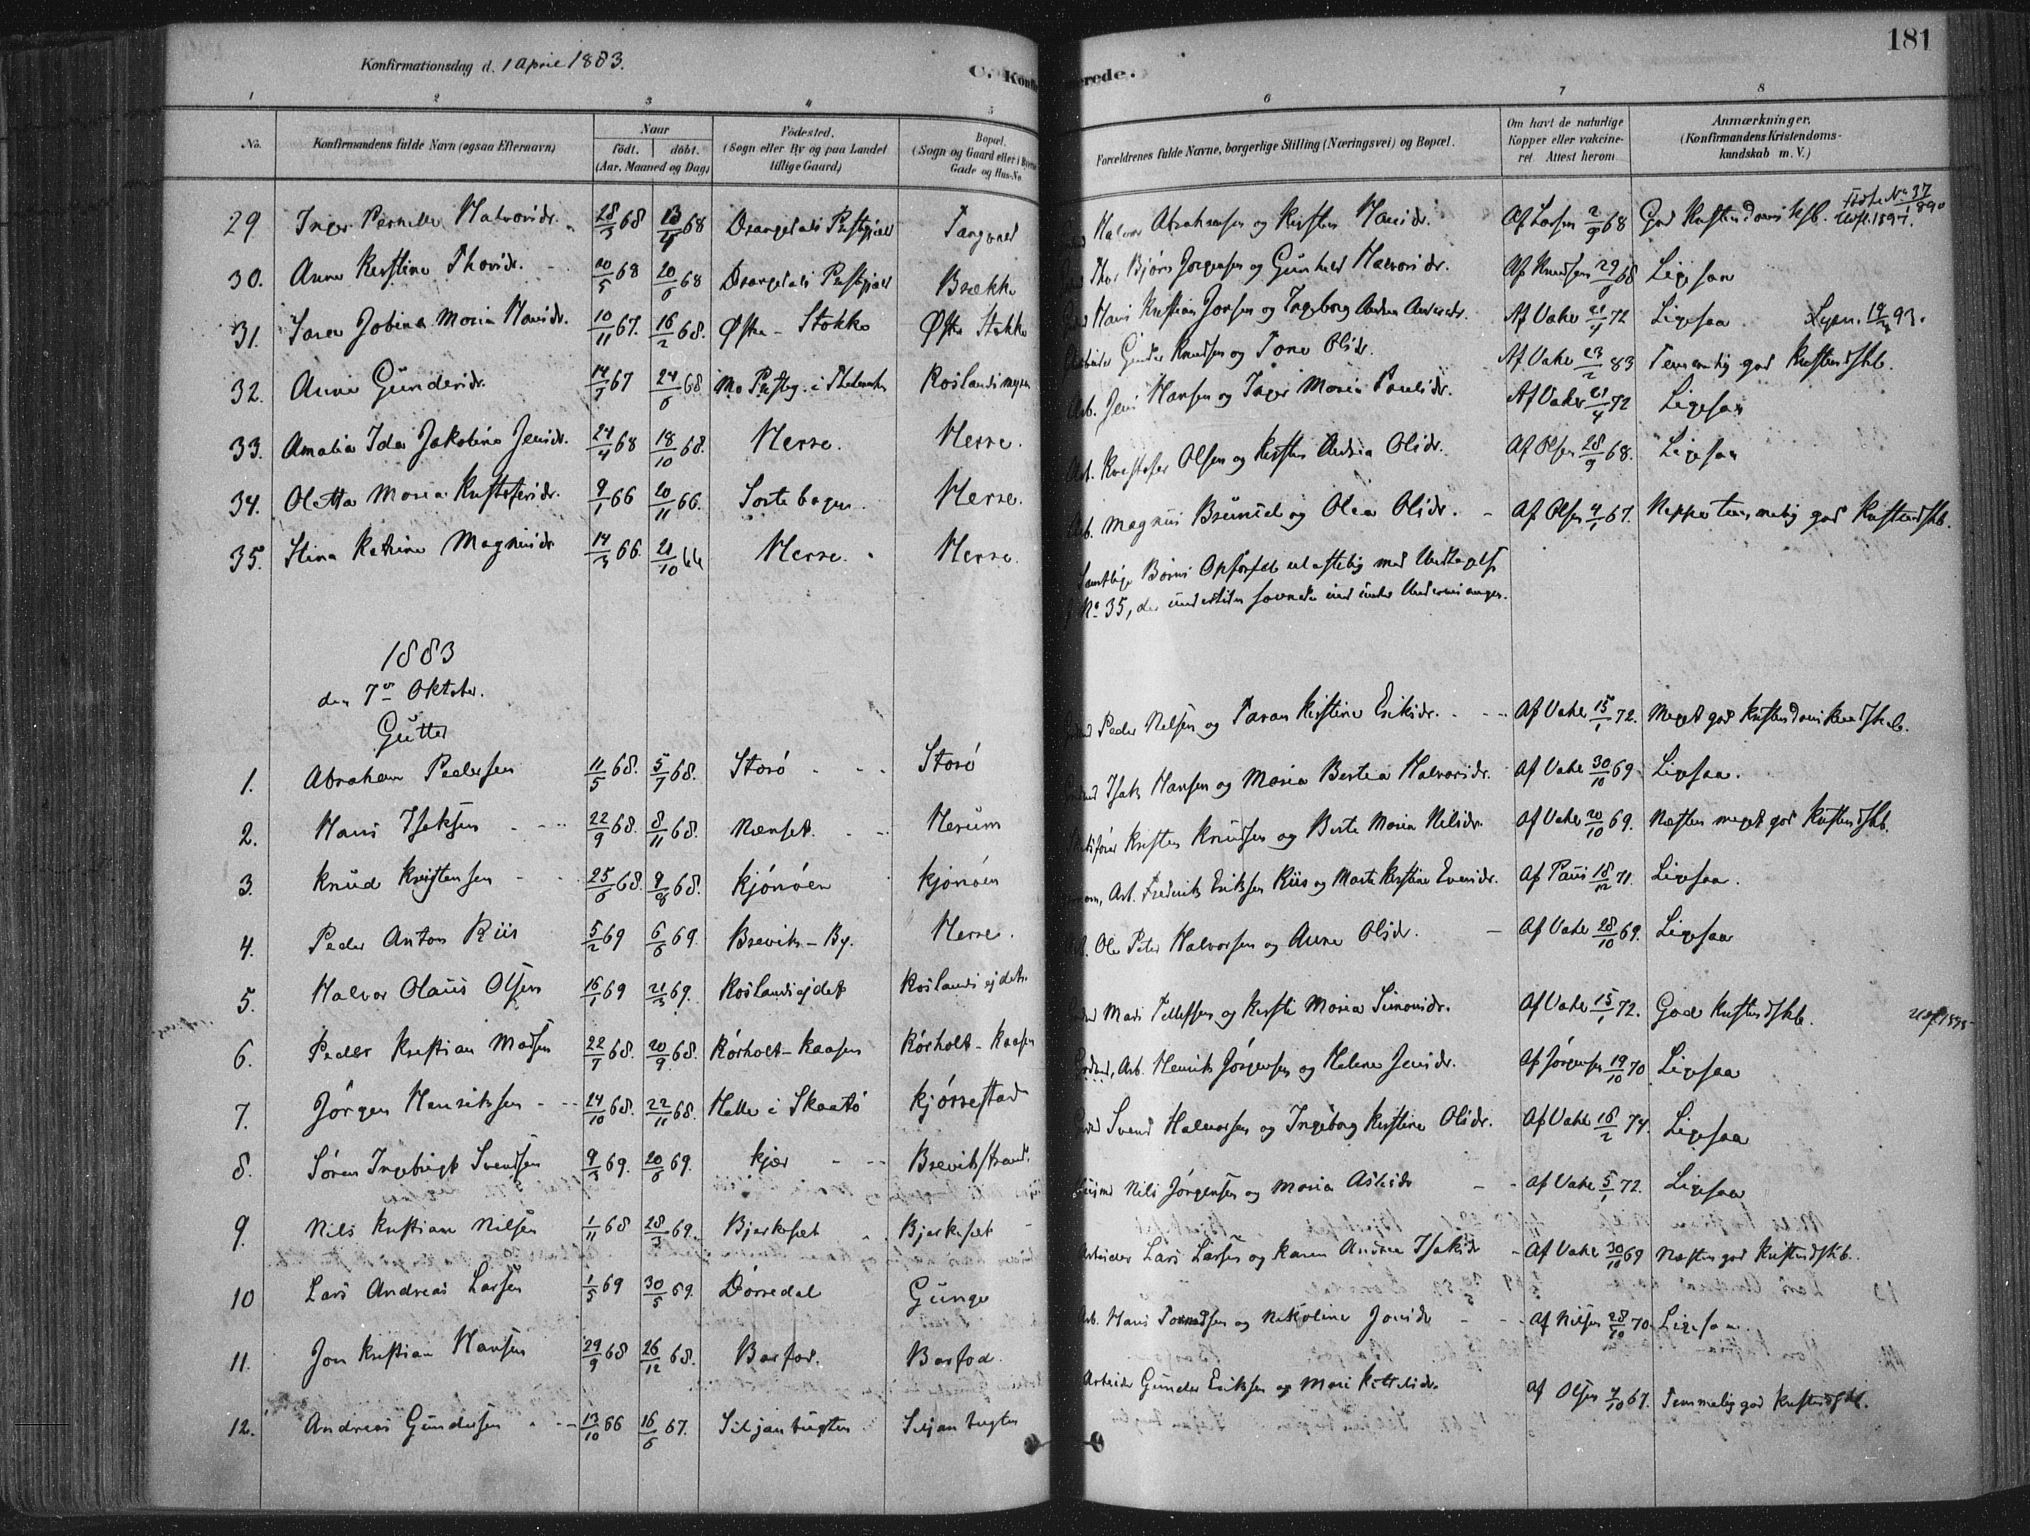 181
Konfirmationsdag d. 1 April 1883.
C. Konfirmerede.
1 2 3 4 5 6 7 8
No. Konfirmandens fulde Navn (ogsaa Efternavn) Naar født. døbt. (Aar, Maaned og Dag) Fødested. (Sogn eller By og paa Landet tillige Gaard) Bopæl. (Sogn og Gaard eller i Byerne Gade og Hus-No. Forældrenes fulde Navne, borgerlige Stilling (Næringsvei) og Bopæl. Om havt de naturlige Kopper eller vakcineret. Attest herom. Anmærkninger. (Konfirmandens Kristendomskundskab m. V.)
29 Inger Pernille Halvorsdr. 28/3 68 13/4 68 Drangedals Præstgjæld Tangvald Halvor Abrahamsen og Kirsten Hansdr. Af Larsen 2/9 68 God Kristendoms Ksb.
30. Anne Kirstine Thorsdr. 20/5 68 20/6 68 Drangedals Præstgjæld Brække Thor Bjørn Jørgensen og Gunhild Halvorsdr. Af Knudsen 29/9 68 Ligesaa
31. Sara Jobina Maria Hansdr. 10/11 67. 16/2 68. Østre-Stokke Østre Stokke Hans Kristian Jonsen og Ingeborg Andrea Andersdr. Af Vahe 21/4 72 Ligesaa 93.
32. Anne Gundersdr. 14/7 67 24/6 68 Mo Præsteg. i Thelemarken Roslandsmyren Arbeider Gunder Knudsen og Tone Olsdr. Af Vahe 23/2 83 Temmelig god Kristendskb.
33. Amalia Ida Jakobine Jensdr. 24/4 68 18/10 68. Herre. Herre. Arb. Jens Hansen og Inger Maria Paulsdr. Af Vahe 21/4 72 Ligesaa
34. Oletta Maria Kristofersdr. 9/1 66 20/11 66. Sortebogen Herre. Arb. Kristofer Olsen og Kirsten Andrea Olsdr. Af Olsen 28/9 68. Ligesaa
35. Stina Katrine Magnusdr 14/3 66. 21/10 66 Herre. Herre. Arb. Magnus Brunil og Olea Olsdr. Af Olsen 4/1 67. Neppe temmelig god Kristendskb.
Samtlige Børns Opførsel ulastelig med Undtagelse
f No. 35, der undertiden sovnede ind under Undervisningen.
1883
den 7de Oktober.
Gutter
1. Abraham Pedersen 11/5 68. 5/7 68. Storø Storø Peder Nilsen og Taran Kirstine Eriksdr. Af Vahe 15/1 72. Meget god Kristendomskundskb.
2. Hans Isaksen 22/9 68. 8/11 68. Nænset. Herum Isak Hansen og Maria Bertea Halvorsdr. Af Vahe 30/10 69. Ligesaa.
3. Knud Kristensen 25/6 68. 9/8 68. Kjønøen Kjønøen Kristen Knudsen og Berte Maria Nilsdr. Af Vahe 20/10 69. Næsten meget god Kristendskb.
4. Peder Anton Riis 5/2 69 6/6 69. Brevik-By. Herre. Arb. Frederik Eriksen Riis og Marte Kirstine Evensdr. Af Paus 18/12 71. Ligesaa.
5. Halvor Olaus Olsen 16/1 69 21/3 69. Roslandsejdet Roslandsejdet. Ole Peter Halvorsen og Anne Olsdr. Af Vahe 28/10 69. Ligesaa
6. Peder Kristian Madsen 22/7 68. 20/9 68. Rørholt-Kaasen Rørholt-Kaasen Mads Tellefsen og Kirstie Maria Simonsdr. Af Vahe 15/1 72. God Kristendskb.
7. Jørgen Henriksen 24/10 68. 22/11 68. Halle i Skaatø Kjørrestad Arb. Henrik Jørgensen og Helene Jensdr. Af Jørgensen 19/10 70 Ligesaa
8. Søren Ingebrigt Svendsen 9/3 69. 20/6 69. Kjær Brevikstrand. Svend Halvorsen og Ingeborg Kirstine Olsdr. Af Vahe 16/2 74. Ligesaa
9. Nils Kristian Nilsen 1/11 68 28/3 69. Bjerkeset Bjerkeset Nils Jørgensen og Maria Aslesdr Af Vahe 5/1 72. Ligesaa
10 Lars Andreas Larsen 1/5 69 30/5 69. Dørredal Gunge Arbeider Lars Larsen og Karen Andrea Isaksdr Af Vahe 30/10 69 Næsten god Kristendskb.
11. Jon Kristian Hansen 29/9 68 26/12 68. Barfod. Barfod. Arb. Hans og Nikoline Jonsdr Af Nilsen 28/10 70 Ligesaa
12. Andreas Gundersen 13/10 66 16/6 67. Siljanbugten Siljanbugten Arbeider Gunder Eriksen og Mari Kittilsdr. Af Olsen 4/10 67. Temmelig god Kristendskb.